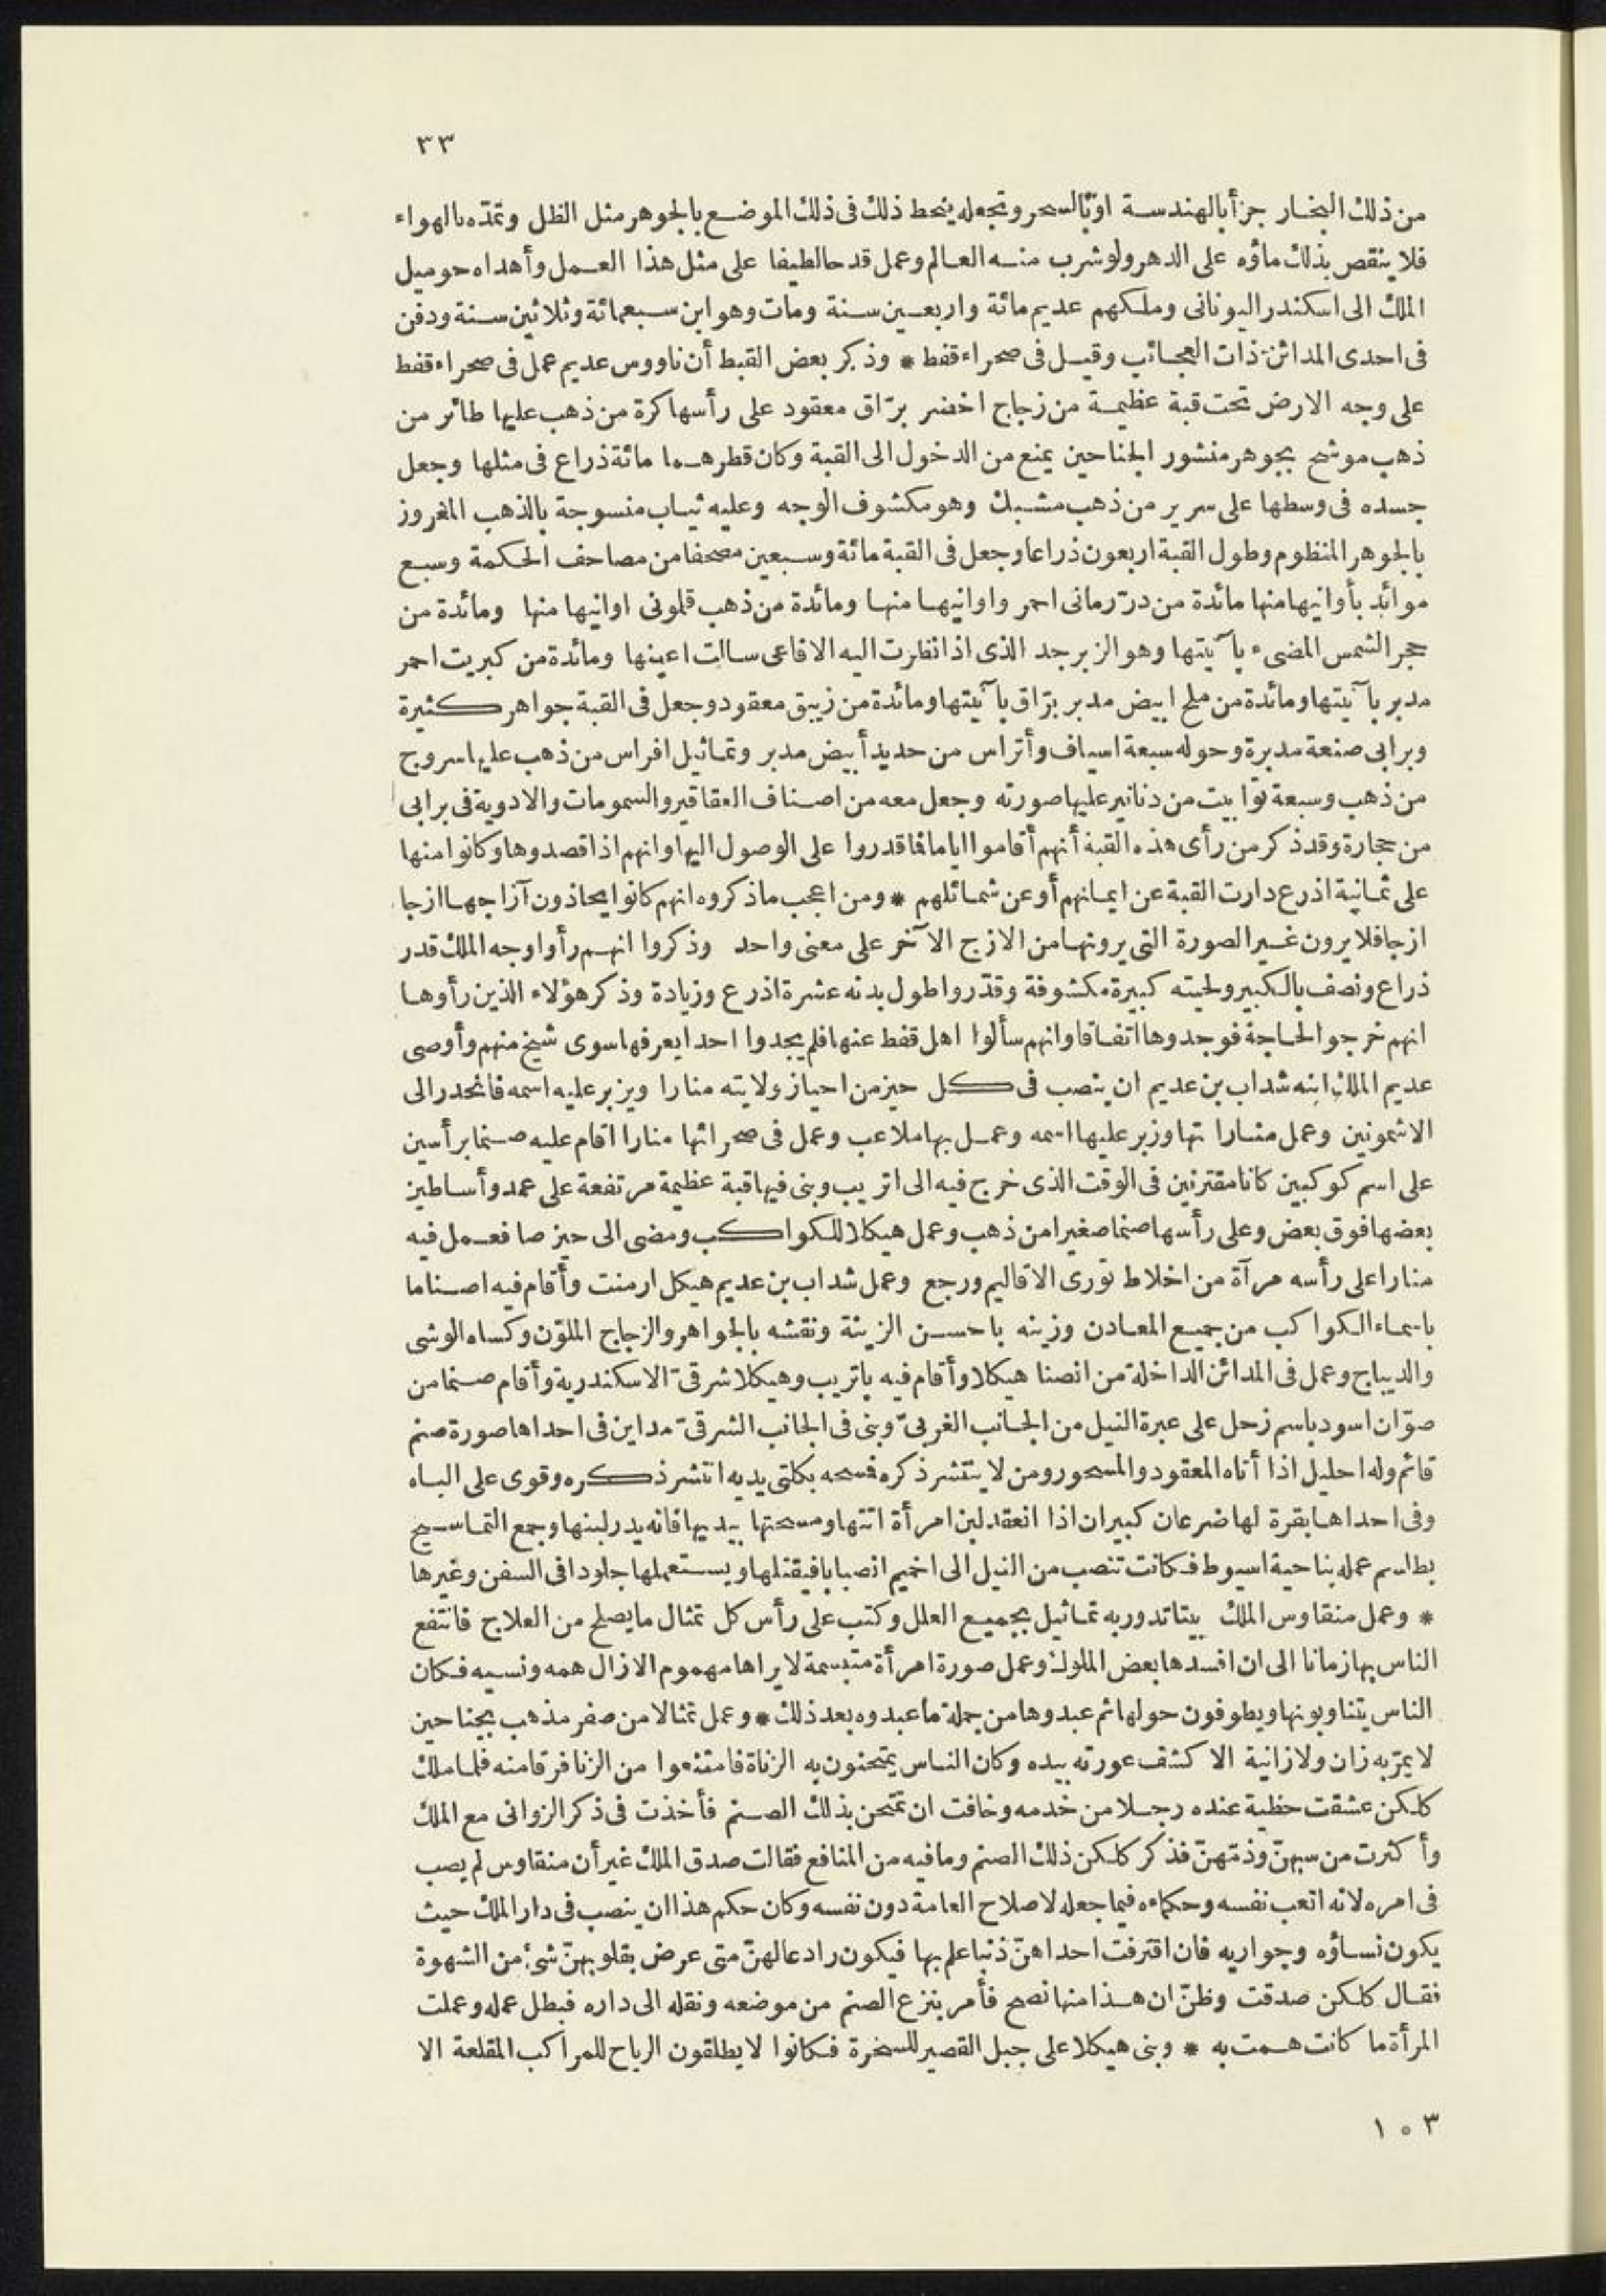 ٣٣
من ذلك البخار جزأ بالهندسة او بالسحر وتجعله ينحط ذلك فى ذلك الموضع بالجوهر مثل الظل وتمدّه بالهواء
فلا ينقص بذلك ماؤه على الدهر ولو شرب منه العالم وعمل قدحا لطيفا على مثل هذا العمل وأهداه حوميل
الملك الى اسكندر اليونانى وملكهم عديم مائة واربعين سنة ومات وهو ابن سبعمائة وثلاثين سنة ودفن
فى احدى المدائن ذات العجائب وقيل فى صحراء قفط * وذكر بعض القبط أن ناووس عديم عمل فى صحراء قفط
على وجه الارض تحت قبة عظيمة من زجاج اخضر برّاق معقود على رأسها كرة من ذهب عليها طائر من
ذهب موشح بجوهر منشور الجناحين يمنع من الدخول الى القبة وكان قطرهما مائة ذراع فى مثلها وجعل
جسده فى وسطها على سرير من ذهب مشبك وهو مكشوف الوجه وعليه ثياب منسوجة بالذهب المغروز
بالجوهر المنظوم وطول القبة اربعون ذراعا وجعل فى القبة مائة وسبعين مصحفا من مصاحف الحكمة وسبع
موائد بأوانيها منها مائدة من درّ رمانى احمر واوانيها منها ومائدة من ذهب قلمونى اوانيها منها ومائدة من
حجر الشمس المضىء بآنيتها وهو الزبرجد الذى اذا نظرت اليه الافاعى سالت اعينها ومائدة من كبريت احمر
مدبر بآنيتها ومائدة من ملح ابيض مدبر برّاق بآنيتها ومائدة من زيبق معقود وجعل فى القبة جواهر كثيرة
وبرابى صنعة مدبرة وحوله سبعة اسياف وأتراس من حديد أبيض مدبر وتماثيل افراس من ذهب عليها سروج
من ذهب وسبعة توابيت من دنانير عليها صورته وجعل معه من اصناف العقاقير والسمومات والادوية فى برابى
من حجارة وقد ذكر من رأى هذه القبة أنهم أقاموا اياما فما قدروا على الوصول اليها وانهم اذا قصدوها وكانوا منها
على ثمانية اذرع دارت القبة عن ايمانهم أو عن شمائلهم * ومن اعجب ما ذكروه انهم كانوا يحاذون آزاجها ازجا
ازجا فلا يرون غير الصورة التى يرونها من الازج الآخر على معنى واحد وذكروا انهم رأوا وجه الملك قدر
ذراع ونصف بالكبير ولحيته كبيرة مكشوفة وقدّروا طول بدنه عشرة اذرع وزيادة وذكر هؤلاء الذين رأوها
انهم خرجوا لحاجة فوجدوها اتفاقا وانهم سألوا اهل قفط عنها فلم يجدوا احدا يعرفها سوى شيخ منهم وأوصى
عديم الملك ابنه شداب بن عديم ان ينصب فى كل حيز من احياز ولايته منارا ويزبر عليه اسمه فانحدر الى
الاشمونين وعمل منارا تها وزبر عليها اسمه وعمل بها ملاعب وعمل فى صحرائها منارا اقام عليه صنما برأسين
على اسم كوكبين كانا مقترنين فى الوقت الذى خرج فيه الى اتريب وبنى فيها قبة عظيمة مرتفعة على عمد وأساطين
بعضها فوق بعض وعلى رأسها صنما صغيرا من ذهب وعمل هيكلا للكواكب ومضى الى حيز صا فعمل فيه
منارا على رأسه مرآة من اخلاط تورى الاقاليم ورجع وعمل شداب بن عديم هيكل ارمنت وأقام فيه اصناما
باسماء الكواكب من جميع المعادن وزينه باحسن الزينة ونقشه بالجواهر والزجاج الملوّن وكساه الوشى
والديباج وعمل فى المدائن الداخلة من انصنا هيكلا وأقام فيه باتريب وهيكلا شرقىّ الاسكندرية وأقام صنما من
صوّان اسود باسم زحل على عبرة النيل من الجانب الغربىّ وبنى فى الجانب الشرقىّ مداين فى احداها صورة صنم
قائم وله احليل اذا أتاه المعقود والمسحور ومن لا ينتشر ذكره فمسحه بكلتى يديه انتشر ذكره وقوى على الباه
وفى احداها بقرة لها ضرعان كبيران اذا انعقد لبن امرأة اتتها ومسحتها بيديها فانه يدر لبنها وجمع التماسيح
بطلسم عمله بناحية اسيوط فكانت تنصب من النيل الى اخميم انصبابا فيقتلها ويستعملها جلودا فى السفن وغيرها
* وعمل منقاوس الملك بيتا تدور به تماثيل بجميع العلل وكتب على رأس كل تمثال ما يصلح من العلاج فانتفع
الناس بها زمانا الى ان افسدها بعض الملوك وعمل صورة امرأة متبسمة لا يراها مهموم الا زال همه ونسيه فكان
الناس يتناوبونها ويطوفون حولها ثم عبدوها من جملة ما عبدوه بعد ذلك * وعمل تمثالا من صفر مذهب بجناحين
لا يمرّ به زان ولا زانية الا كشف عورته بيده وكان الناس يمتحنون به الزناة فامتنعوا من الزنا فرقا منه فلما ملك
كلكن عشقت حظية عنده رجلا من خدمه وخافت ان تمتحن بذلك الصنم فأخذت فى ذكر الزوانى مع الملك
وأكثرت من سبهنّ وذمّهنّ فذكر كلكن ذلك الصنم وما فيه من المنافع فقالت صدق الملك غير أن منقاوس لم يصب
فى امره لانه اتعب نفسه وحكماءه فيما جعله لاصلاح العامة دون نفسه وكان حكم هذا ان ينصب فى دار الملك حيث
يكون نساؤه وجواريه فان اقترفت احداهنّ ذنبا علم بها فيكون رادعا لهنّ متى عرض بقلوبهنّ شئ من الشهوة
فقال كلكن صدقت وظنّ ان هذا منها نصح فأمر بنزع الصنم من موضعه ونقله الى داره فبطل عمله وعملت
المرأة ما كانت همت به * وبنى هيكلا على جبل القصير للسحرة فكانوا لا يطلقون الرياح للمراكب المقلعة الا
١٠٣